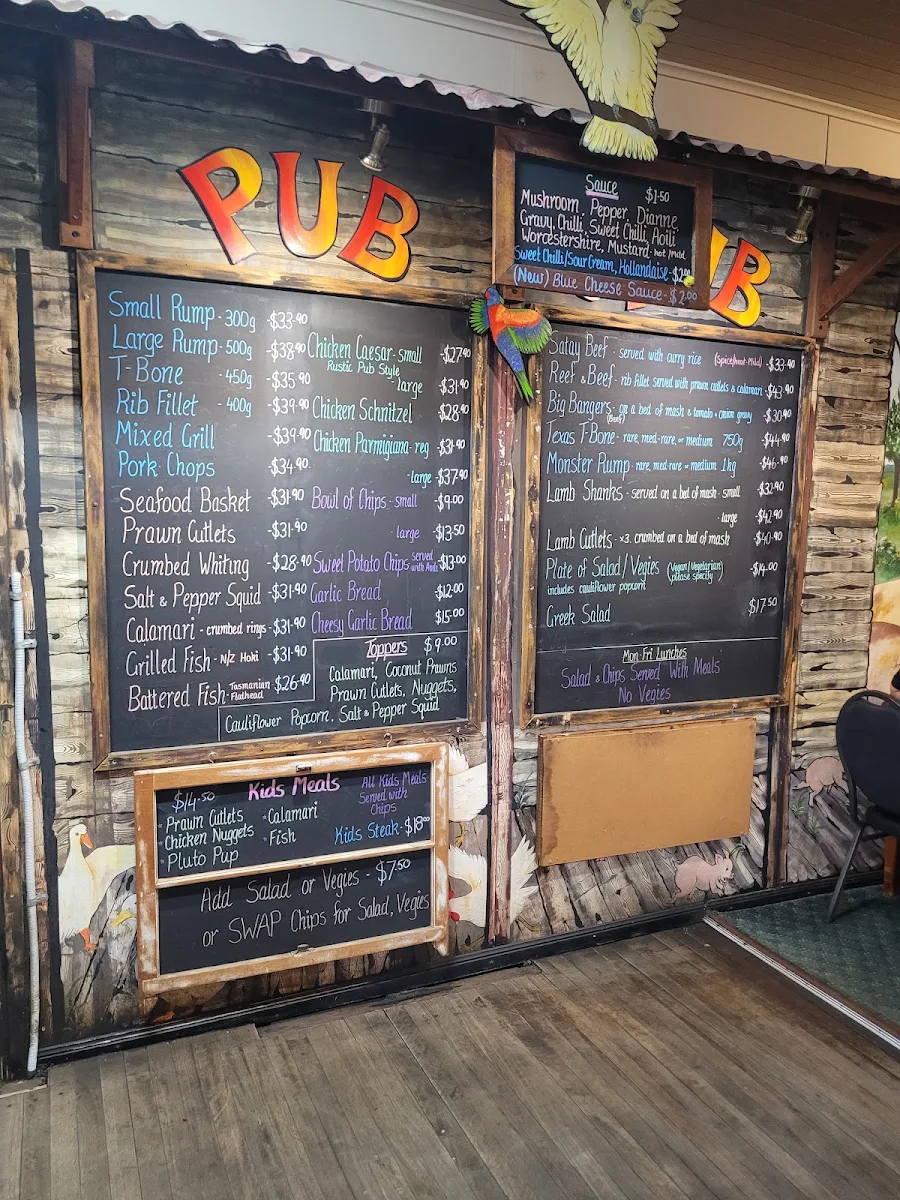 PUB
Small Rump - 300g -$33.90
Large Rump - 500g -$38.90
T-Bone - 450g -$35.90
Rib Fillet - 400g -$39.90
Mixed Grill -$39.90
Pork Chops -$34.90
Seafood Basket -$31.90
Prawn Cutlets -$31.90
Crumbed Whiting -$28.90
Salt & Pepper Squid -$31.90
Calamari - crumbed rings -$31.90
Grilled Fish - N/Z Hoki -$31.90
Battered Fish - Tasmanian Flathead $26.90
Chicken Caesar - small -$27.90
Rustic Pub Style
- large -$31.90
Chicken Schnitzel -$28.90
Chicken Parmigiana - reg -$31.90
- large -$37.90
Bowl of Chips - small -$9.00
- large $13.50
Sweet Potato Chips served with -$13.00
Garlic Bread -$12.00
Cheesy Garlic Bread $15.00
Toppers $9.00
Calamari, Coconut Prawns
Prawn Cutlets, Nuggets,
Cauliflower Popcorn, Salt & Pepper Squid
Sauce $1.50
Mushroom Pepper Dianne
Gravy, Chilli, Sweet Chilli, Aoili
Worcestershire, Mustard - hot/mild
Sweet Chilli/Sour Cream, Hollandaise -
(New) Blue Cheese Sauce - $2.00
UB
Satay Beef - served with curry rice -$33.90
Reef & Beef - rib fillet served with prawn cutlets & calamari -$43.90
Big Bangers - on a bed of mash & tomato & onion gravy -$30.90
(Beef)
Texas T-Bone - rare, med-rare, or medium 750g -$44.90
Monster Rump - rare, med-rare or medium 1kg -$46.90
Lamb Shanks - served on a bed of mash - small -$32.90
- large -$42.90
Lamb Cutlets - x3. crumbed on a bed of mash -$40.90
Plate of Salad/Vegies (Vegan/Vegetarian please specify) -$14.00
includes cauliflower popcorn
Greek Salad $17.50
Mon-Fri Lunches
Salad & Chips Served With Meals
No Vegies
Kids Meals
$14.50
• Prawn Cutlets
• Chicken Nuggets
• Pluto Pup
• Calamari
• Fish
All Kids Meals
Served with
Chips
Kids Steak -
Add Salad or Vegies - $7.50
or SWAP Chips for Salad, Vegies